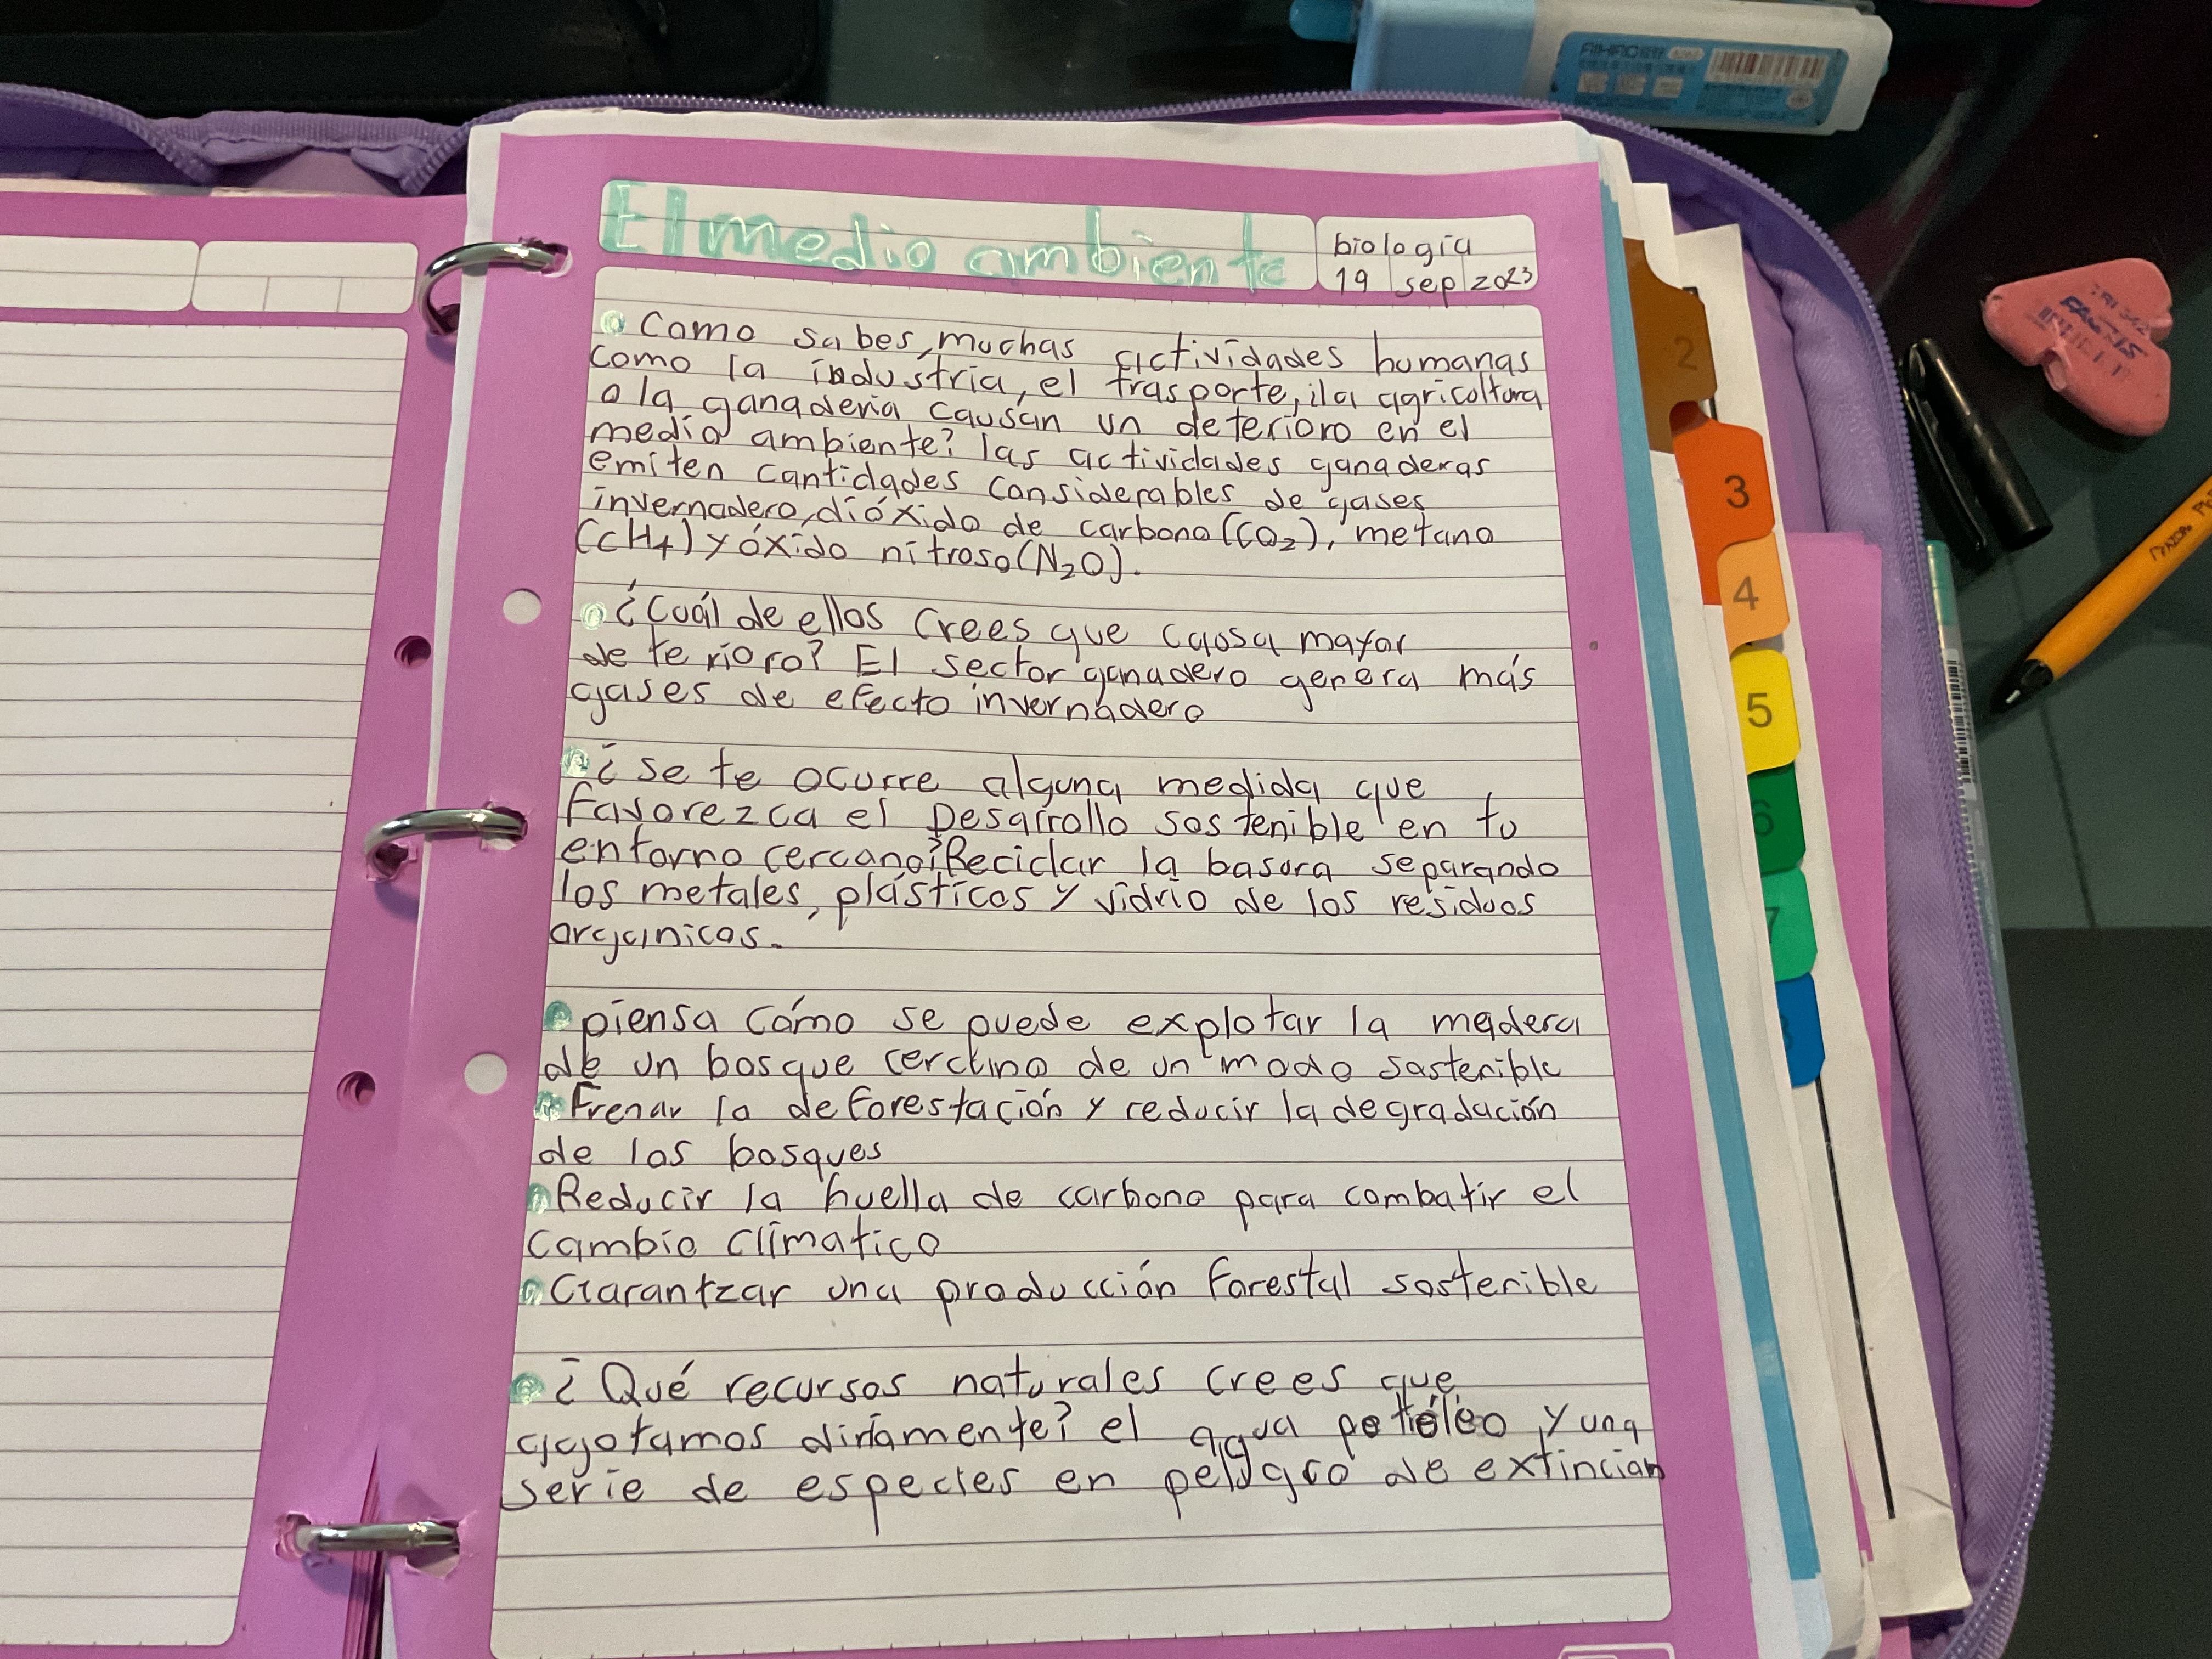 El medio ambiente
biología
19 sep 2023
Como sabes, muchas actividades humanas
como la industria, el trasporte, ¡la agricoltura
o la ganaderia causan un deterioro en el
medio ambiente? las actividades ganaderas
emiten cantidades considerables de gases
invernadero, dióxido de carbono (CO2), metano
(CH4) y óxido nitroso (N2O).
¿Cuál de ellos crees que causa mayor
deterioro? El sector ganadero genera más
gases de efecto invernadero
¿se te ocurre alguna medida que
favorezca el Desarrollo sostenible en tu
entorno cercano? Reciclar la basura separando
los metales, plásticos y vidrio de los residuos
organicos.
piensa cómo se puede explotar la madera
de un bosque cercano de un modo sostenible
Frenar la deforestación y reducir la degradación
de los bosques
Reducir la huella de carbono para combatir el
cambio climatico
Garantzar una producción forestal sostenible
¿Qué recursos naturales crees que
agotamos diriamente? el agua petróleo y una
serie de especies en peligro de extincian
2
3
4
5
6
7
8